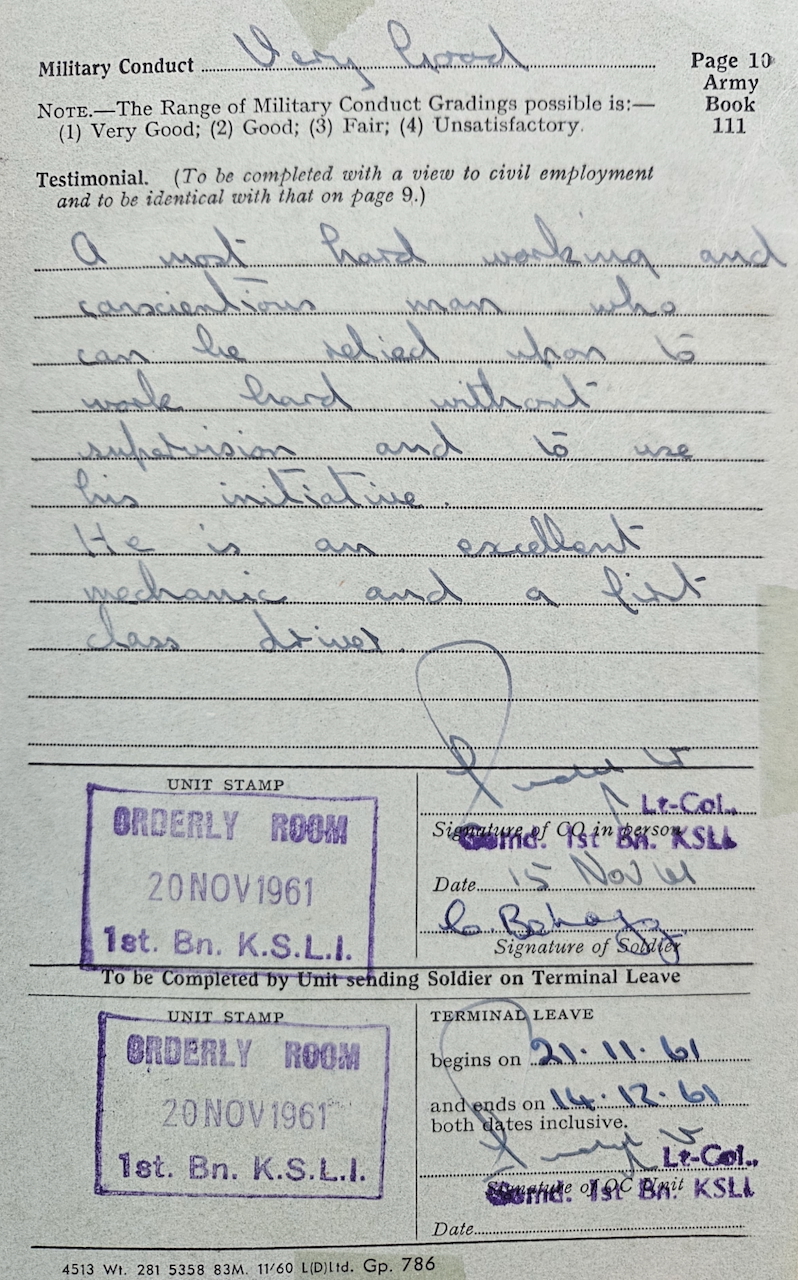 Military Conduct Very Good
Page 10
Army
Book
111
NOTE.—The Range of Military Conduct Gradings possible is:—
(1) Very Good; (2) Good; (3) Fair; (4) Unsatisfactory.
Testimonial. (To be completed with a view to civil employment
and to be identical with that on page 9.)
A most hard working and
conscientious man who
can be relied upon to
work hard without
supervision and to use
his initiative.
He is an excellent
mechanic and a first
class driver.
UNIT STAMP
ORDERLY ROOM
20 NOV 1961
1st. Bn. K.S.L.I.
Lt-Col.,
Signature of CO in person
Comd. 1st Bn. KSLI
Date 15 Nov 61
Signature of Soldier
To be Completed by Unit sending Soldier on Terminal Leave
UNIT STAMP
ORDERLY ROOM
20 NOV 1961
1st. Bn. K.S.L.I.
TERMINAL LEAVE
begins on 21.11.61
and ends on 14.12.61
both dates inclusive.
Lt-Col.,
Signature of OC Unit
Comd. 1st Bn. KSLI
Date
4513 Wt. 281 5358 83M. 11/60 L(D)Ltd. Gp. 786